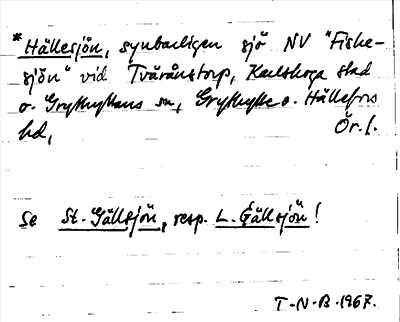 *Hällesjön, synbarligen sjö NV "Fiske-
sjön" vid Tvärånstorp, Karlskoga stad
o. Grythyttans sn, Grythytte o. Hällefors
hd, Ör. l.
Se St. Gällsjön, resp. L. Gällsjön!
T-N-B-1967.